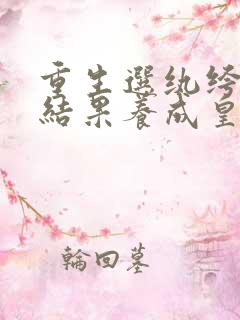 重生選紈絝
結果養成皇
輪回墓